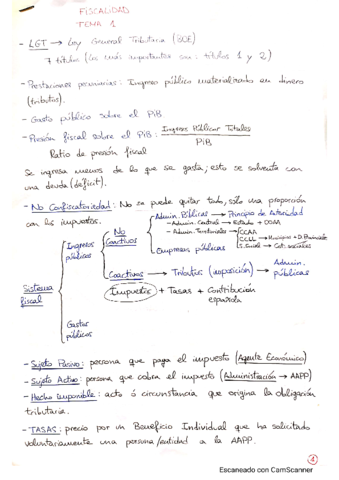 FISCALIDAD
TEMA 1
- LGT → Ley General Tributaria (BOE)
7 títulos (los más importantes son: títulos 1 y 2)
- Prestaciones pecuniarias: Ingreso público materializado en dinero
(tributos).
- Gasto público sobre el PiB
- Presión fiscal sobre el PiB: Ingresos Públicos Totales
PiB
Ratio de presión fiscal
Se ingresa menos de lo que se gasta; esto se solventa con
una deuda (déficit).
- No Confiscatoriedad: No se puede quitar todo, sólo una proporción
con los impuestos.
Sistema fiscal
Ingresos públicos
No Coactivos
Admin. Públicas → Principio de Autoridad
- Admin. Central → Estado + OOAA
- Admin. Territoriales → CCAA
CCLL → Municipios + D. Provinciales
S. Social → Cot. sociales
Empresas públicas
Coactivos → Tributos (imposición) → Admin. públicas
Impuestos + Tasas + Contribución española
Gastos públicos
- Sujeto Pasivo: persona que paga el impuesto (Agente Económico)
- Sujeto Activo: persona que cobra el impuesto (Administración → AAPP)
- Hecho imponible: acto ó circunstancia que origina la obligación
tributaria.
- TASAS: precio por un Beneficio Individual que ha solicitado
voluntariamente una persona/entidad a la AAPP.
1
Escaneado con CamScanner